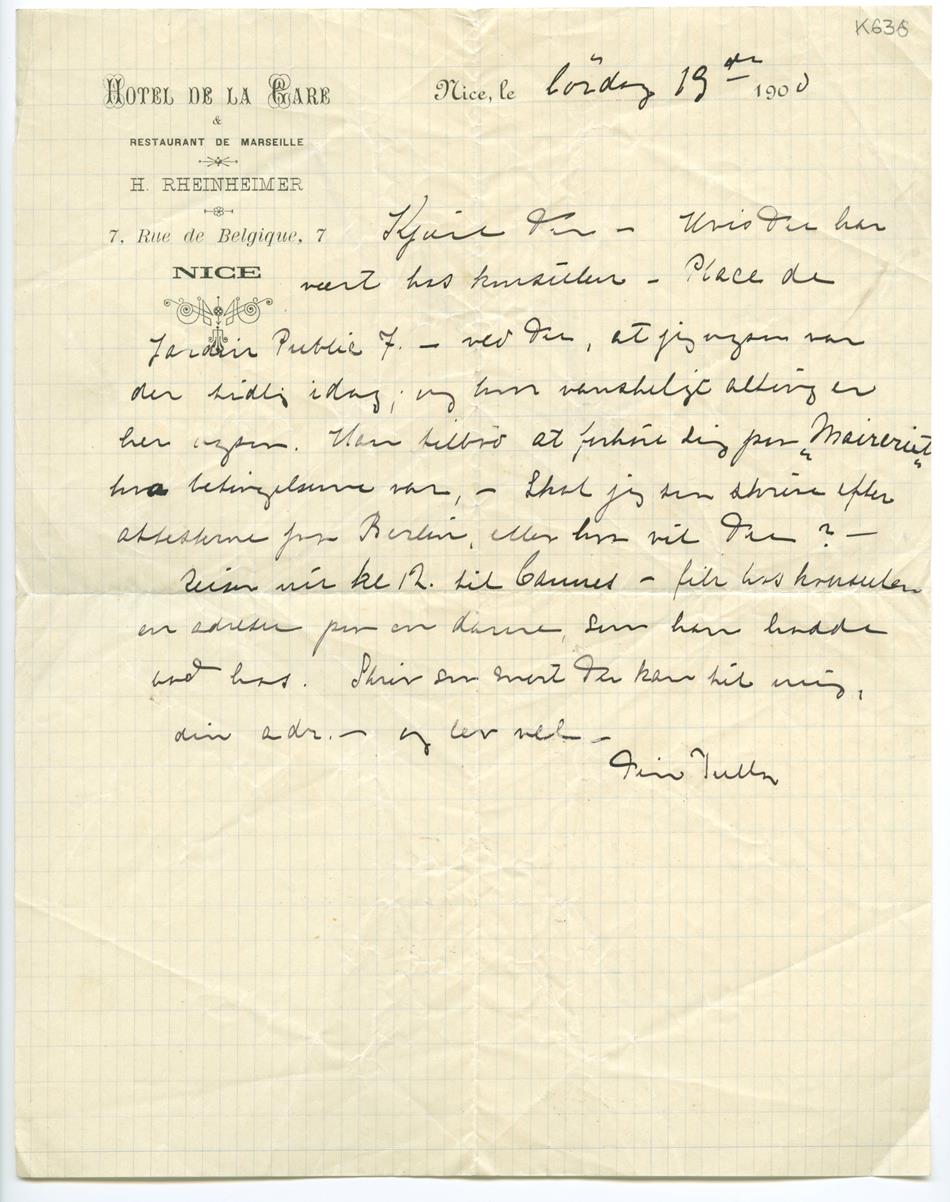 K636
HOTEL DE LA GARE
&
RESTAURANT DE MARSEILLE
H. RHEINHEIMER
7, Rue de Belgique, 7
NICE
Nice, le lördag 19de 1900
Kjære Du – Hvis Du har
vært hos konsulen – Place du
Jardin Public 7. – ved Du, at jeg ogsaa var
der tidlig idag, og hvor vanskeligt alting er
her ogsaa. Han tilbød at forhøre sig paa „Maireriet“
hva betingelserne var, – Skal jeg saa skrive efter
attesterne fra Berlin, eller hva vil Du? –
Reiser nu kl 12. til Cannes – fik hos konsulen
en adresse paa en dame, som han hadde
vad hos. Skriv saa snart Du kan til mig,
din adr. – og lev vel –
Din Tulla